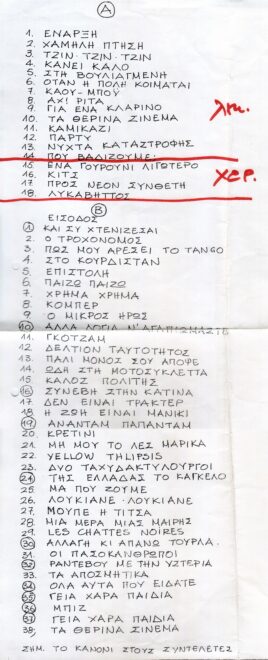 Α
1. ΕΝΑΡΞΗ
2. ΧΑΜΗΛΗ ΠΤΗΣΗ
3. ΤΖΙΝ·ΤΖΙΝ·ΤΖΙΝ
4. ΚΑΝΕΙ ΚΑΛΟ
5. ΣΤΗ ΒΟΥΛΙΑΓΜΕΝΗ
6. ΟΤΑΝ Η ΠΟΛΗ ΚΟΙΜΑΤΑΙ
7. ΚΑΟΥ-ΜΠΟΥ
8. ΑΧ! ΡΙΤΑ
9. ΓΙΑ ΕΝΑ ΚΛΑΡΙΝΟ
10. ΤΑ ΘΕΡΙΝΑ ΣΙΝΕΜΑ
11. ΚΑΜΙΚΑΖΙ
12. ΠΑΡΤΥ
13. ΝΥΧΤΑ ΚΑΤΑΣΤΡΟΦΗΣ
14. ΠΟΥ ΒΑΔΙΖΟΥΜΕ
15. ΕΝΑ ΓΟΥΡΟΥΝΙ ΛΙΓΩΤΕΡΟ
16. ΚΙΤΣ
17. ΠΡΟΣ ΝΕΟΝ ΣΥΝΘΕΤΗ
18. ΛΥΚΑΒΗΤΤΟΣ
χερ.
Β
ΕΙΣΟΔΟΣ
1 ΚΑΙ ΣΥ ΧΤΕΝΙΖΕΣΑΙ
2. Ο ΤΡΟΧΟΝΟΜΟΣ
3. ΠΩΣ ΜΟΥ ΑΡΕΣΕΙ ΤΟ TANGO
4. ΣΤΟ ΚΟΥΡΔΙΣΤΑΝ
5. ΕΠΙΣΤΟΛΗ
6. ΠΑΙΖΩ ΠΑΙΖΩ
7. ΧΡΗΜΑ ΧΡΗΜΑ
8. ΚΟΜΠΕΡ
9. Ο ΜΙΚΡΟΣ ΗΡΩΣ
10 ΑΛΛΑ ΛΟΓΙΑ Ν' ΑΓΑΠΙΩΜΑΣΤΕ
11. ΓΚΟΤΖΑΜ
12. ΔΕΛΤΙΟΝ ΤΑΥΤΟΤΗΤΟΣ
13. ΠΑΛΙ ΜΟΝΟΣ ΣΟΥ ΑΠΟΨΕ
14. ΩΔΗ ΣΤΗ ΜΟΤΟΣΥΚΛΕΤΤΑ
15. ΚΑΛΟΣ ΠΟΛΙΤΗΣ
16 ΣΥΝΕΒΗ ΣΤΗΝ ΚΑΤΙΝΑ
17 ΔΕΝ ΕΙΝΑΙ ΤΡΑΚΤΕΡ
18 Η ΖΩΗ ΕΙΝΑΙ ΜΑΝΙΚΙ
19 ΑΝΑΝΤΑΜ ΠΑΠΑΝΤΑΜ
20. ΚΡΕΤΙΝΙ
21. ΜΗ ΜΟΥ ΤΟ ΛΕΣ ΜΑΡΙΚΑ
22. YELLOW THLIPSIS
23. ΔΥΟ ΤΑΧΥΔΑΚΤΥΛΟΥΡΓΟΙ
24 ΤΗΣ ΕΛΛΑΔΟΣ ΤΟ ΚΑΓΚΕΛΟ
25. ΜΑ ΠΟΥ ΖΟΥΜΕ
26. ΛΟΥΚΙΑΝΕ·ΛΟΥΚΙΑΝΕ
27. ΜΟΥΠΕ Η ΤΙΤΣΑ
28. ΜΙΑ ΜΕΡΑ ΜΙΑΣ ΜΑΙΡΗΣ
29. LES CHATTES NOIRES
30 ΑΛΛΑΓΗ ΚΙ ΑΠΑΝΩ ΤΟΥΡΛΑ
31. ΟΙ ΠΑΣΟΚΑΝΘΡΩΠΟΙ
32 ΡΑΝΤΕΒΟΥ ΜΕ ΤΗΝ ΥΣΤΕΡΙΑ
33. ΤΑ ΑΠΟΣΜΗΤΙΚΑ
34 ΟΛΑ ΑΥΤΑ ΠΟΥ ΕΙΔΑΤΕ
35 ΓΕΙΑ ΧΑΡΑ ΠΑΙΔΙΑ
36 ΜΠΙΖ
37 ΓΕΙΑ ΧΑΡΑ ΠΑΙΔΙΑ
38, ΤΑ ΘΕΡΙΝΑ ΣΙΝΕΜΑ
ΣΗΜ. ΤΟ ΚΑΝΟΝΙ ΣΤΟΥΣ ΣΥΝΤΕΛΕΣΤΕΣ